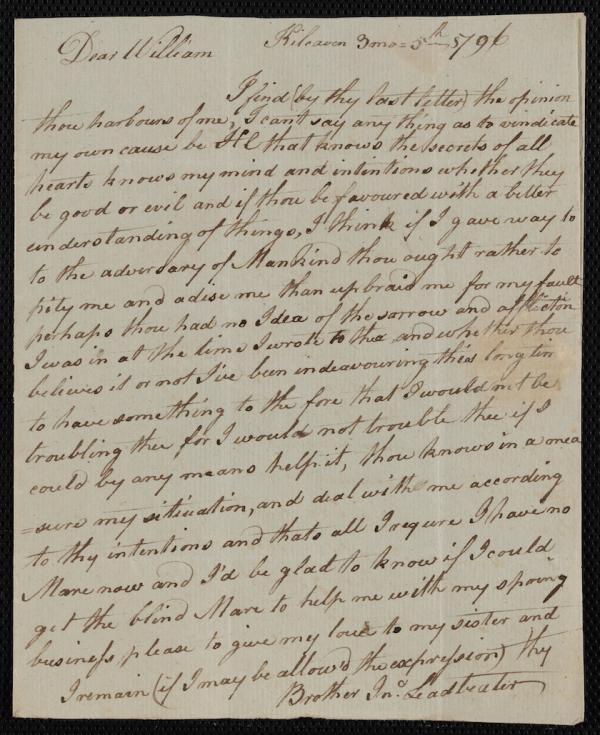 Dear William Kilcaven 3 mo = 5th 5/96
I find (by thy last letter) the opinion
thou harbours of me, I cant say any thing as to vindicate
my own cause be that knows the secrets of all
hearts knows my mind and intintions whether they
be good or evil and if thou be favoured with a better
understanding of things, I think if I gave way to
to the adversary of Mankind thou ought rather to
pity me and adise me than upbraid me for my fault
perhaps thou had no Idea of the sorrow and affliction
I was in at the time I wrote to thee and whether thou
believes it or not I've been indeavouring this long tim
to have something to the fore that I would not be
troubling thee for I would not trouble thee if I
could by any means help it, thou knows in a mea
=sure my situation, and deal with me according
to thy intentions and thats all I requre I have no
Mare now and I'd be glad to know if I could
get the blind Mare to help me with my spring
business please to give my love to my sister and
I remain (if I may be allow'd the expression) thy
Brother Jno. Leadbeater